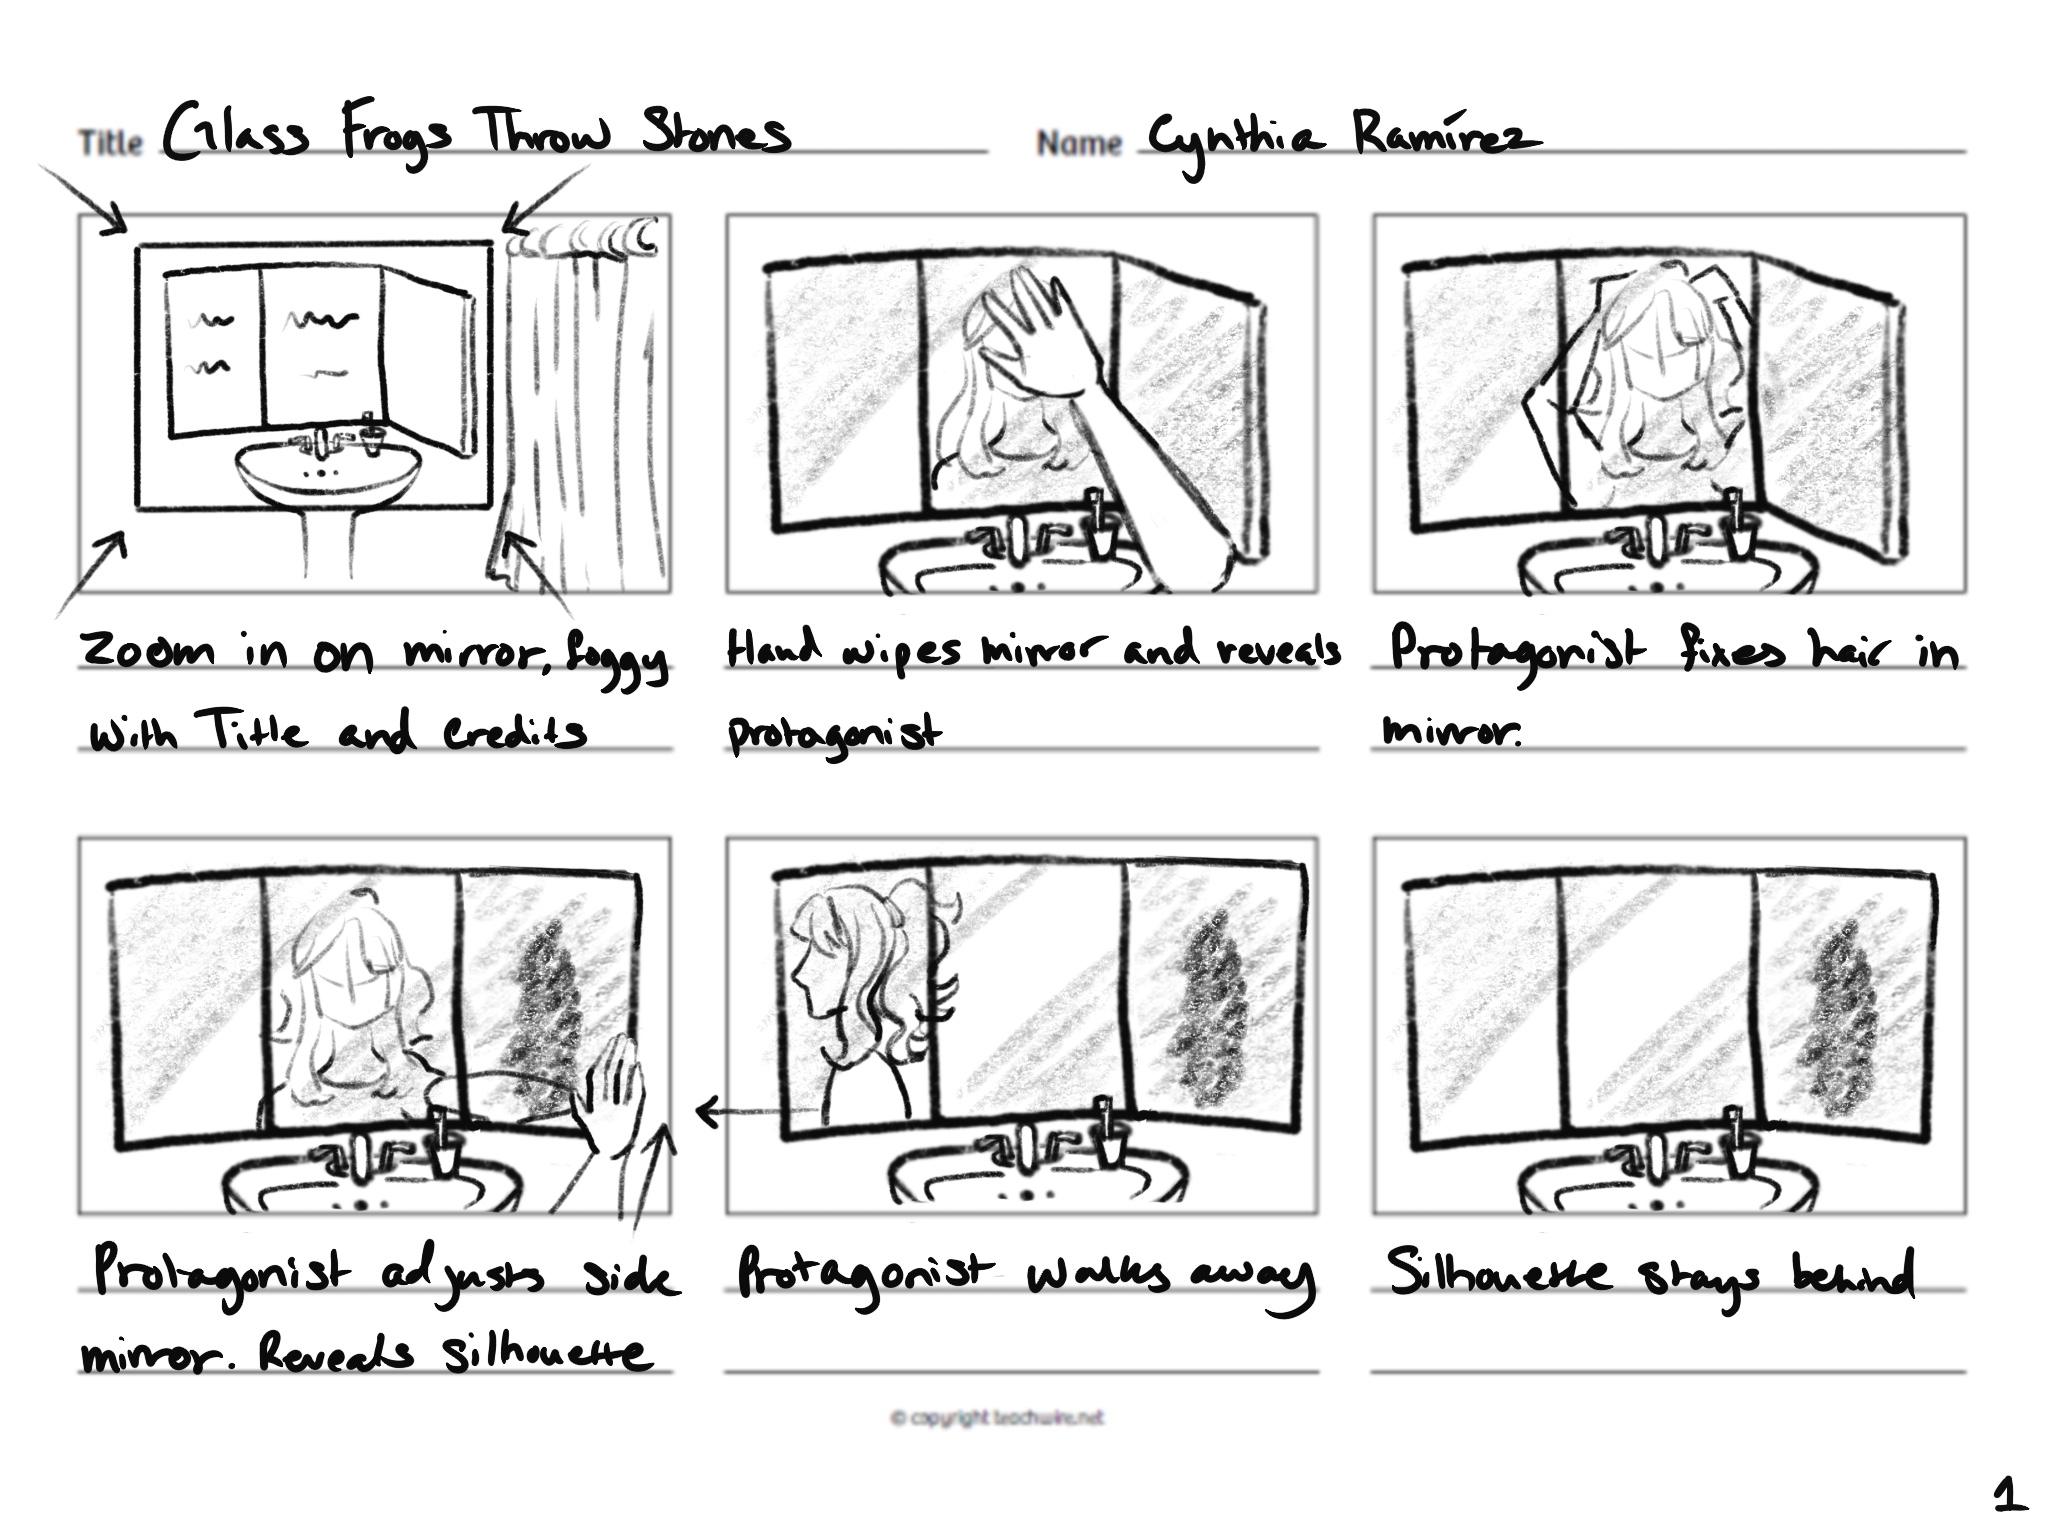 Title Glass Frogs Throw Stones
Name Cynthia Ramírez
Zoom in on mirror, foggy
with Title and credits
Hand wipes mirror and reveals
protagonist
Protagonist fixes hair in
mirror.
Protagonist adjusts side
mirror. Reveals silhouette
Protagonist walks away
Silhouette stays behind
© copyright teachwire.net
1